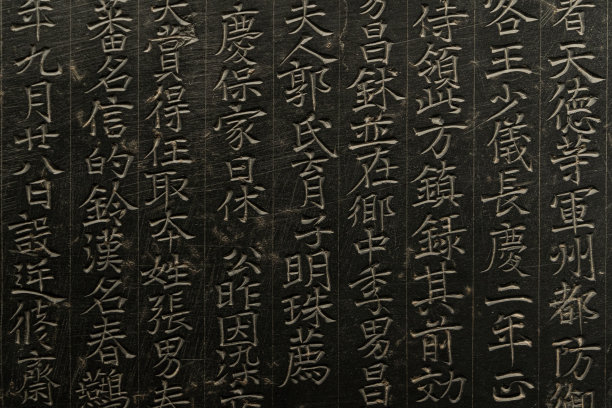 者天德等軍州都防御
各王少儀長慶二年正
侍領此方鎮録其前効
昌鉢並在鄉中季男昌
夫人郭氏育子明珠薦
慶保家日休 公昨因染
賞得任取本姓張男
蕃名信的鈴漢名春
年九月廿八日設延僧修齋